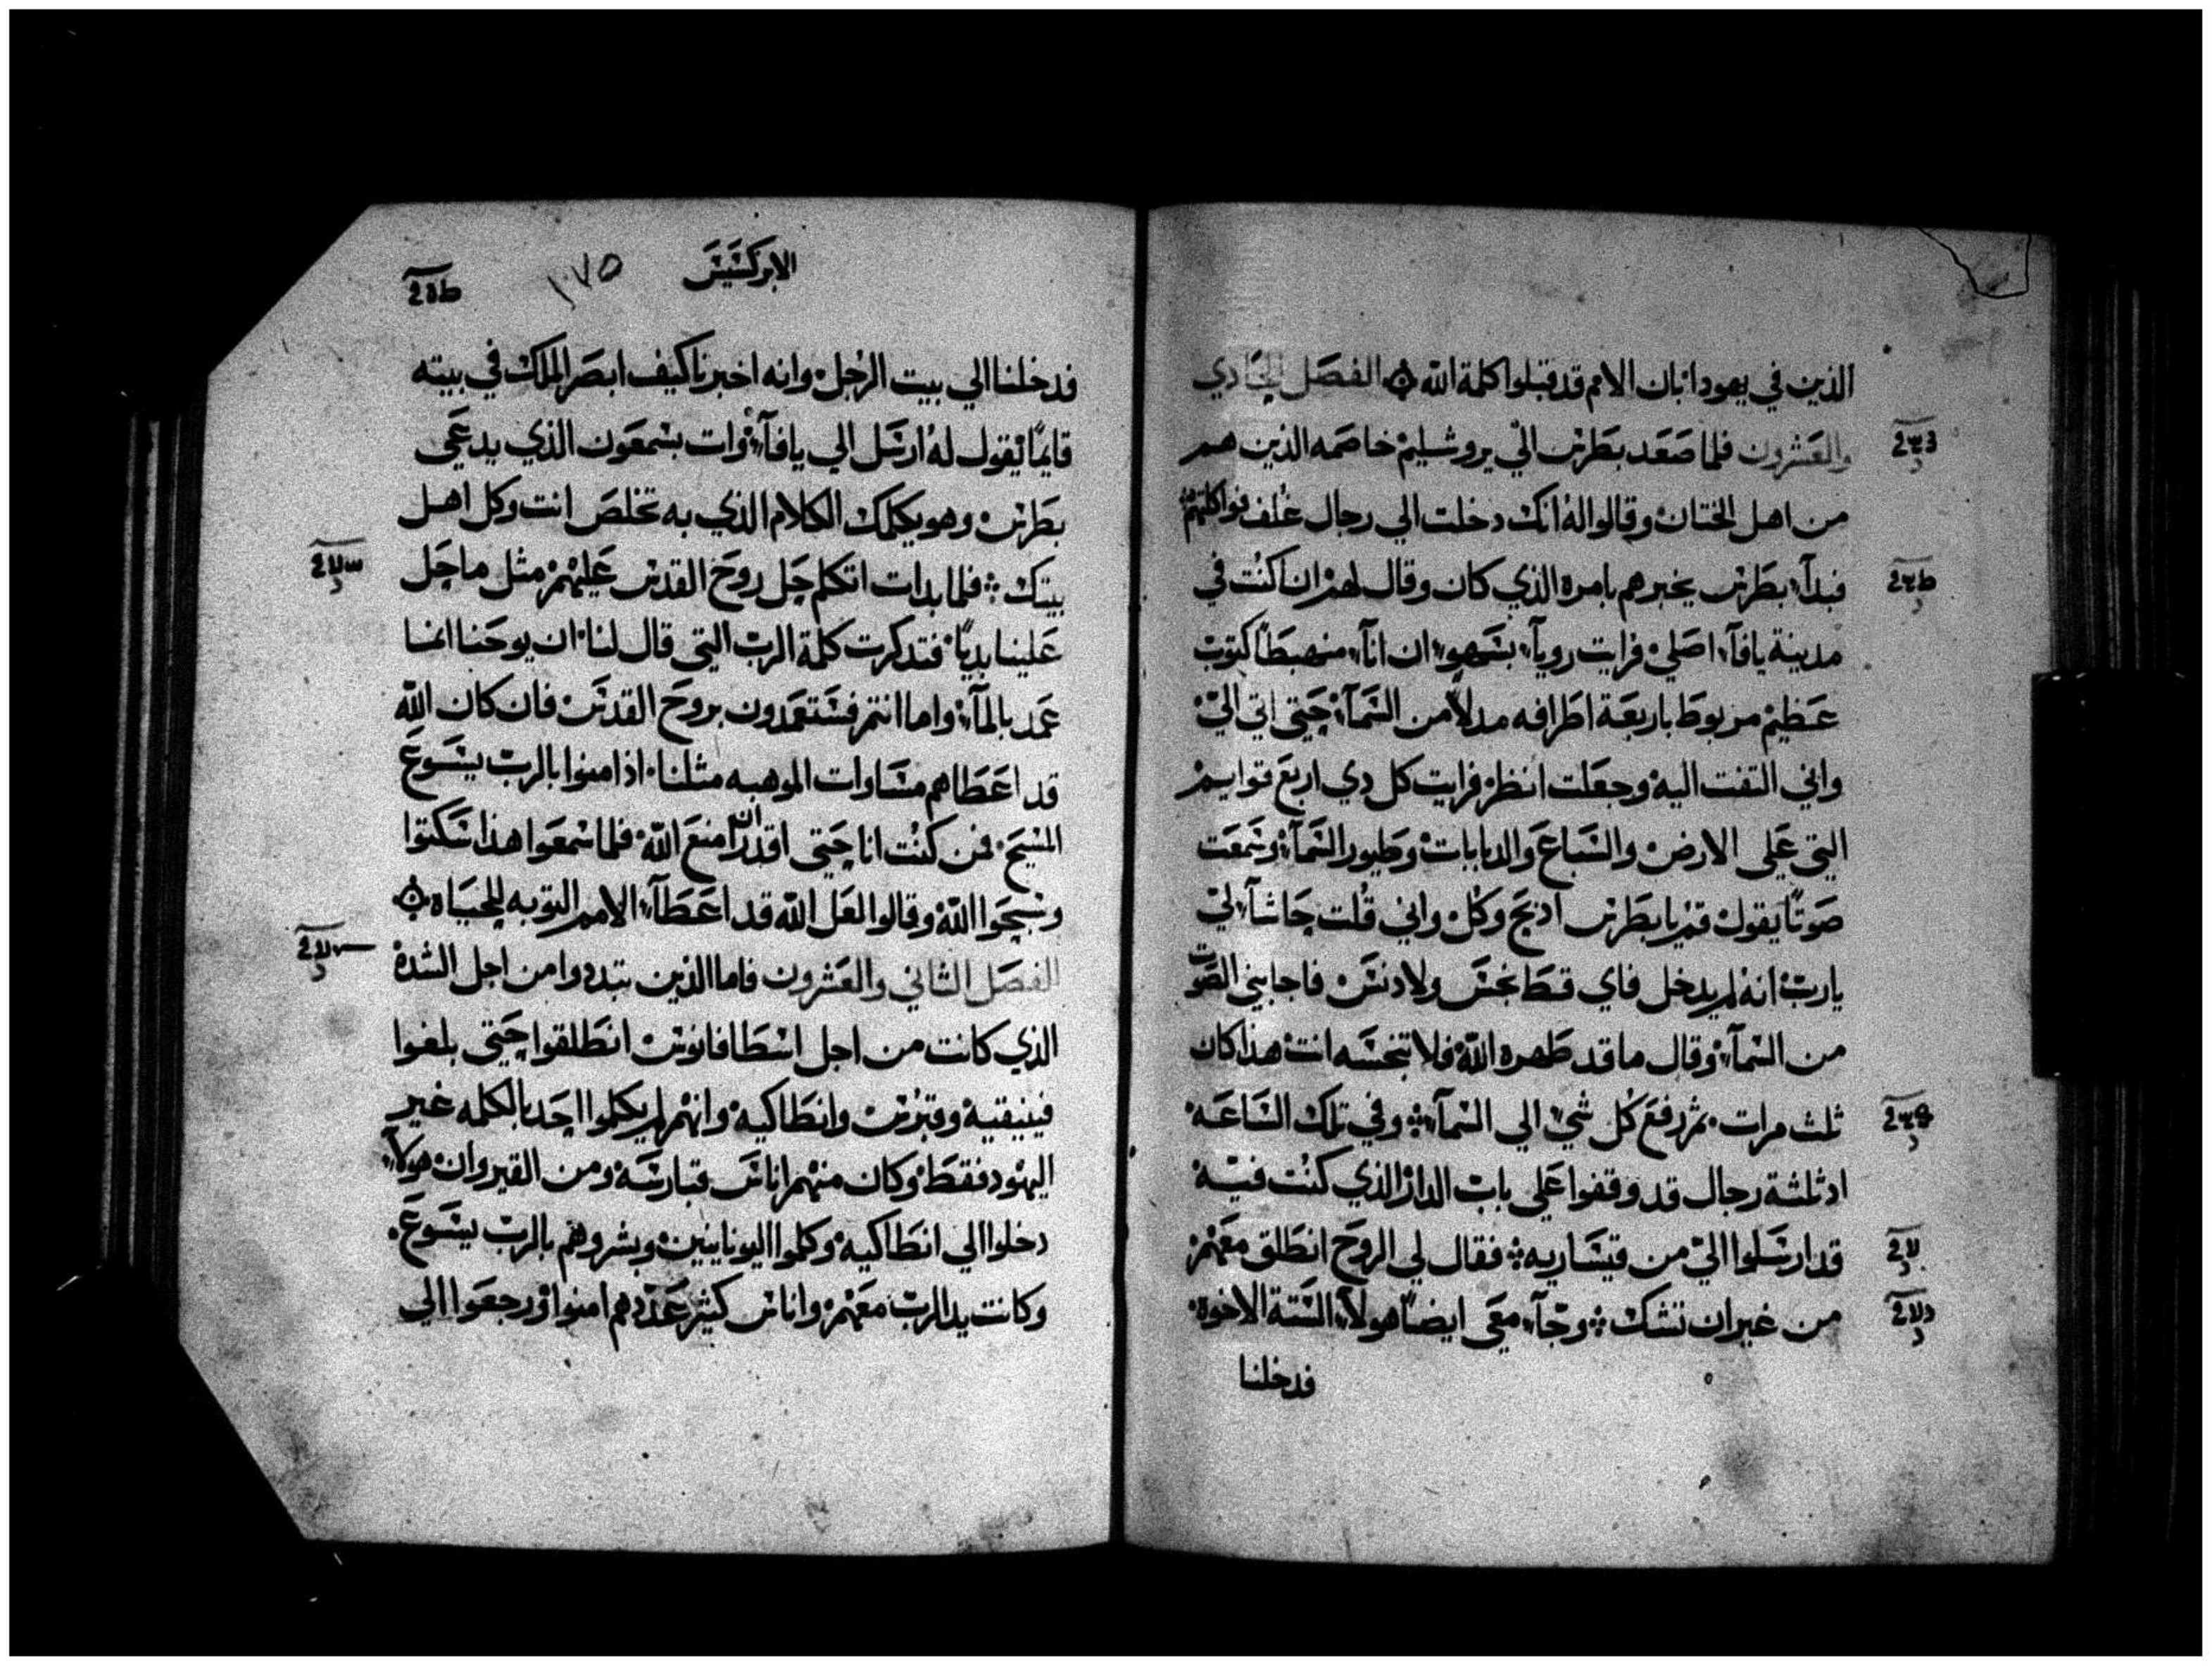 الذين في يهودا بان الامم قد قبلوا كلمة الله الفصل الحادي
والعشرون فلما صعد بطرس الي يروشليم خاصمه الذين هم
من اهل الختان وقالوا له انك دخلت الي رجال غلف فواكلتهم
فبدآء بطرس يخبرهم بامره الذي كان وقال لهم ان كنت في
مدينة يافآء اصلي فرايت رويآء بسهو ان انآء منهبطا كتوب
عظيم مربوط باربعة اطرافه مدلا من السمآء حتي اتي الي
واني التفت اليه وجعلت انظر فرايت كل دي اربع قوايم
التي علي الارض والسباع والدبابات وطيور السمآء وسمعت
صوتا يقول قم يا بطرس ادبح وكل واني قلت حاشآء لي
يارب انه لم يدخل فاي قط نجس ولا دنس فاجابني الصوت
من السمآء وقال ما قد طهره الله فلا تنجسه انت هذا كان
ثلث مرات ثم رفع كل شي الي السمآء وفي تلك الساعه
اد ثلثة رجال قد وقفوا علي باب الدار الذي كنت فيه
قد ارسلوا الي من قيساريه فقال لي الروح انطلق معهم
من غير ان تشك وجآء معي ايضا هولاء الستة الاخوة
فدخلنا
الابركسيس
١٠٧٥
فدخلنا الي بيت الرجل وانه اخبرنا كيف ابصر الملك في بيته
قايما يقول له ارسل الي يافآء وات بسمعون الذي يدعي
بطرس وهو يكلمك الكلام الذي به تخلص انت وكل اهل
بيتك فلما بدات اتكلم حل روح القدس عليهم مثل ما حل
علينا بديا فتدكرت كلمة الرب التي قال لنا ان يوحنا انما
عمد بالمآء واما انتم فستعمدون بروح القدس فان كان الله
قد اعطاهم مساوات الموهبه مثلنا اذ امنوا بالرب يسوع
المسيح فمن كنت انا حتي اقدر ان امنع الله فلما سمعوا هذا سكتوا
وسبحوا الله وقالوا لعل الله قد اعطآء الامم التوبه للحياه
الفصل الثاني والعشرون فاما الذين تبددوا من اجل الشدة
الذي كانت من اجل اسطافانوس انطلقوا حتي بلغوا
فينيقية وقبرس وانطاكيه وانهم لم يكلموا احد بالكلمه غير
اليهود فقط وكان منهم اناس قبارسه ومن القيروان هولاء
دخلوا الي انطاكيه وكلموا اليونانيين وبشروهم بالرب يسوع
وكانت يد الرب معهم واناس كثير عددهم امنوا ورجعوا الي